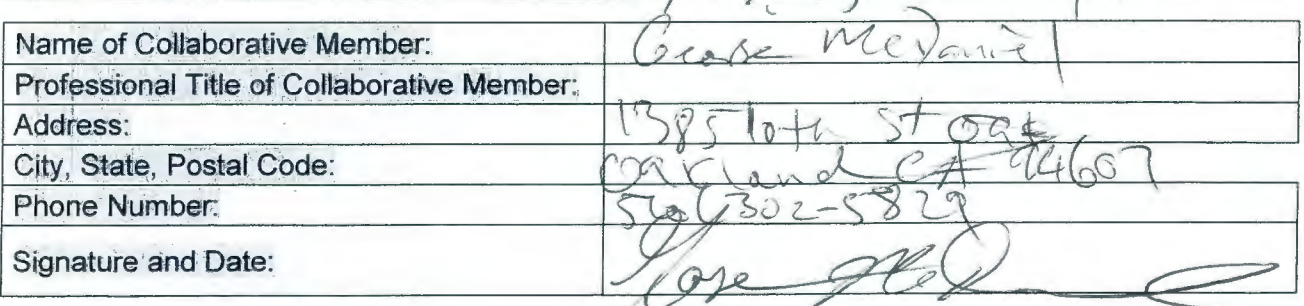 Name of Collaborative Member: George McDaniel
Professional Title of Collaborative Member:
Address: 1385 10th St Oak
City, State, Postal Code: Oakland CA 94607
Phone Number: 302-5829
Signature and Date: